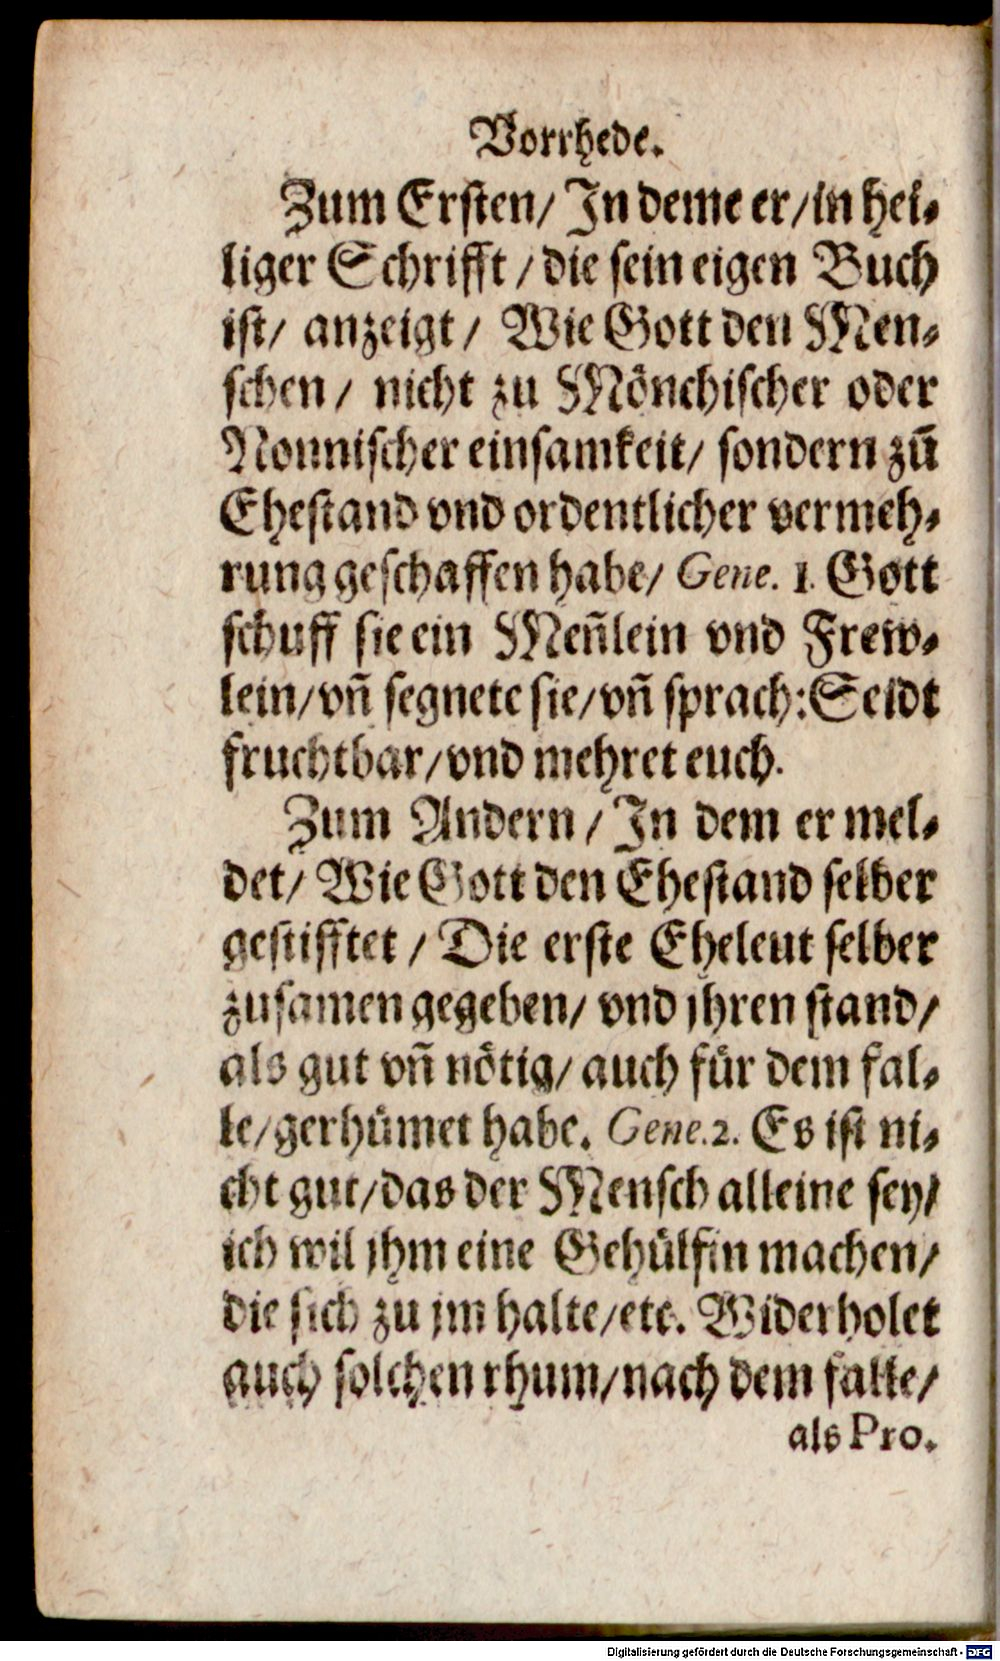 Vorrhede.
Zum Ersten/ In deme er/in hei-
liger Schrifft / die sein eigen Buch
ist/ anzeigt / Wie Gott den Men-
schen / nicht zu Mönchischer oder
Nonnischer einsamkeit/ sondern zū
Ehestand vnd ordentlicher vermeh-
rung geschaffen habe/ Gene. 1. Gott
schuff sie ein Meñlein vnd Frew-
lein/vñ segnete sie/vñ sprach:Seidt
fruchtbar/vnd mehret euch.
Zum Andern / In dem er mel-
det/ Wie Gott den Ehestand selber
gestifftet / Die erste Eheleut selber
zusamen gegeben/ vnd jhren stand/
als gut vñ nötig/ auch für dem fal-
le/gerhümet habe. Gene.2. Es ist ni-
cht gut/das der Mensch alleine sey/
ich wil jhm eine Gehülfin machen/
die sich zu jm halte/etc. Widerholet
auch solchen rhum/nach dem falle/
als Pro.
Digitalisierung gefördert durch die Deutsche Forschungsgemeinschaft - DFG